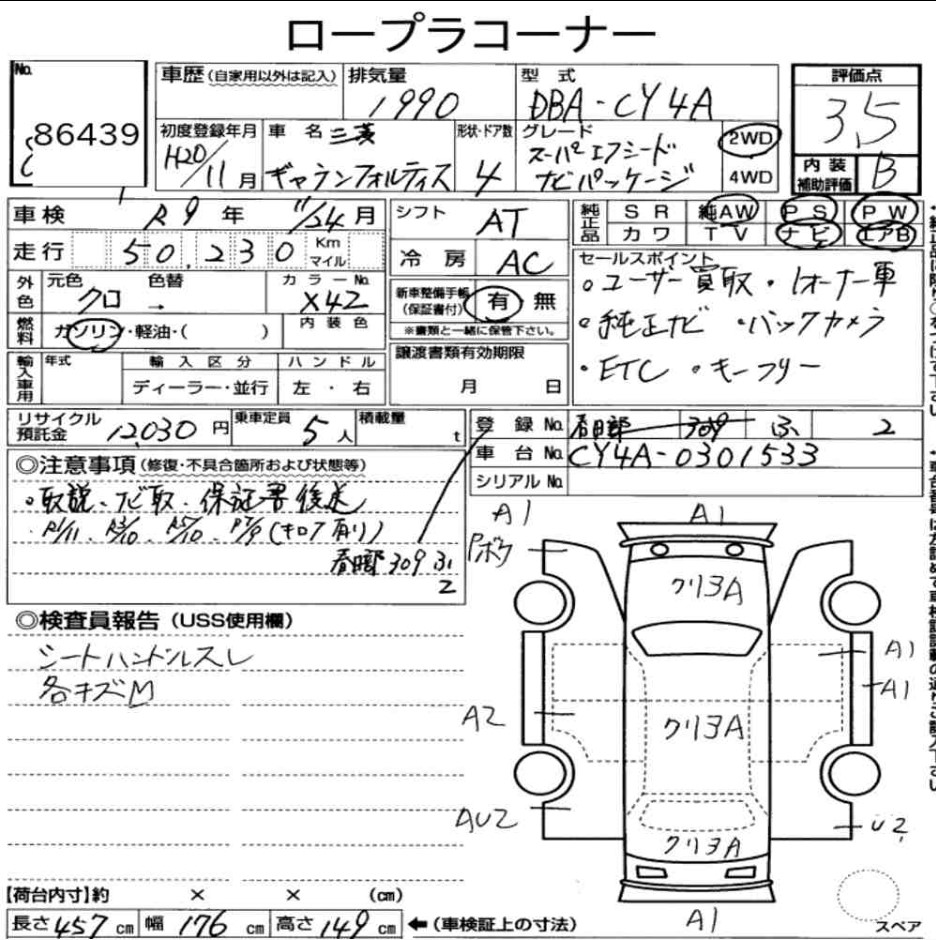 ロープラコーナー
No.
86439
車歴(自家用以外は記入)
排気量
1990
型式
DBA-CY4A
評価点
3.5
初度登録年月
H20/11月
車名
三菱
ギャランフォルティス
形状・ドア数
4
グレード
スーパーエクシード
ナビパッケージ
2WD
4WD
内装
補助評価
B
車検 R9年 11/24月
シフト AT
純正品
SR 純AW PS PW
カワ TV ナビ エアB
走行 50,230 Km
マイル
冷房 AC
セールスポイント
。ユーザー買取・1オーナー車
。純正ナビ・バックカメラ
・ETC 。キーフリー
外色
元色 色替
クロ →
カラーNo.
X42
新車整備手帳
(保証書付)
有 無
※書類と一緒に保管下さい。
燃料
ガソリン・軽油・( )
内装色
輸入車用
年式
輸入区分
ディーラー・並行
ハンドル
左・右
譲渡書類有効期限
月 日
リサイクル
預託金 12,030円
乗車定員 5人
積載量 t
登録No. 春日部 309 ふ 2
車台No. CY4A-0301533
シリアルNo.
◎注意事項(修復・不具合箇所および状態等)
。取説、ナビ取、保証書後送
(キロク有り)
春日部 309 ふ
2
◎検査員報告(USS使用欄)
シートハンドルスレ
各キズM
A1
Pボウ
A1
クリヨA
A1
A1
A2
クリヨA
AU2
U2
クリヨA
A1
スペア
【荷台内寸】約 × × (cm)
長さ457cm 幅176cm 高さ149cm ←(車検証上の寸法)